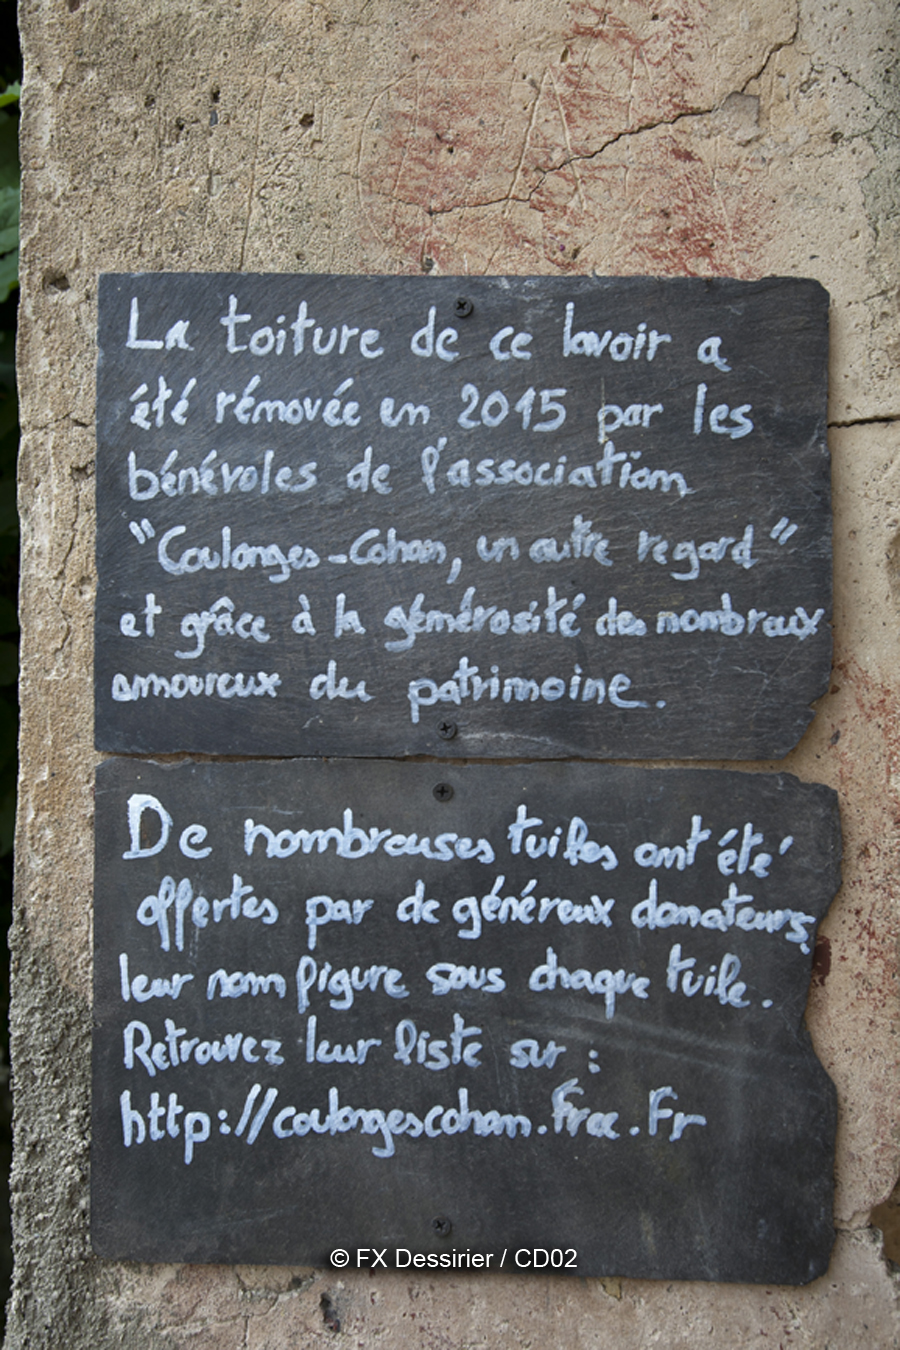 La toiture de ce lavoir a
été rénovée en 2015 par les
bénévoles de l'association
"Coulonges-Cohan, un autre regard"
et grâce à la générosité des nombreux
amoureux du patrimoine.
De nombreuses tuiles ont été
offertes par de généreux donateurs,
leur nom figure sous chaque tuile.
Retrouvez leur liste sur :
http://coulongescohan.free.fr
© FX Dessirier / CD02